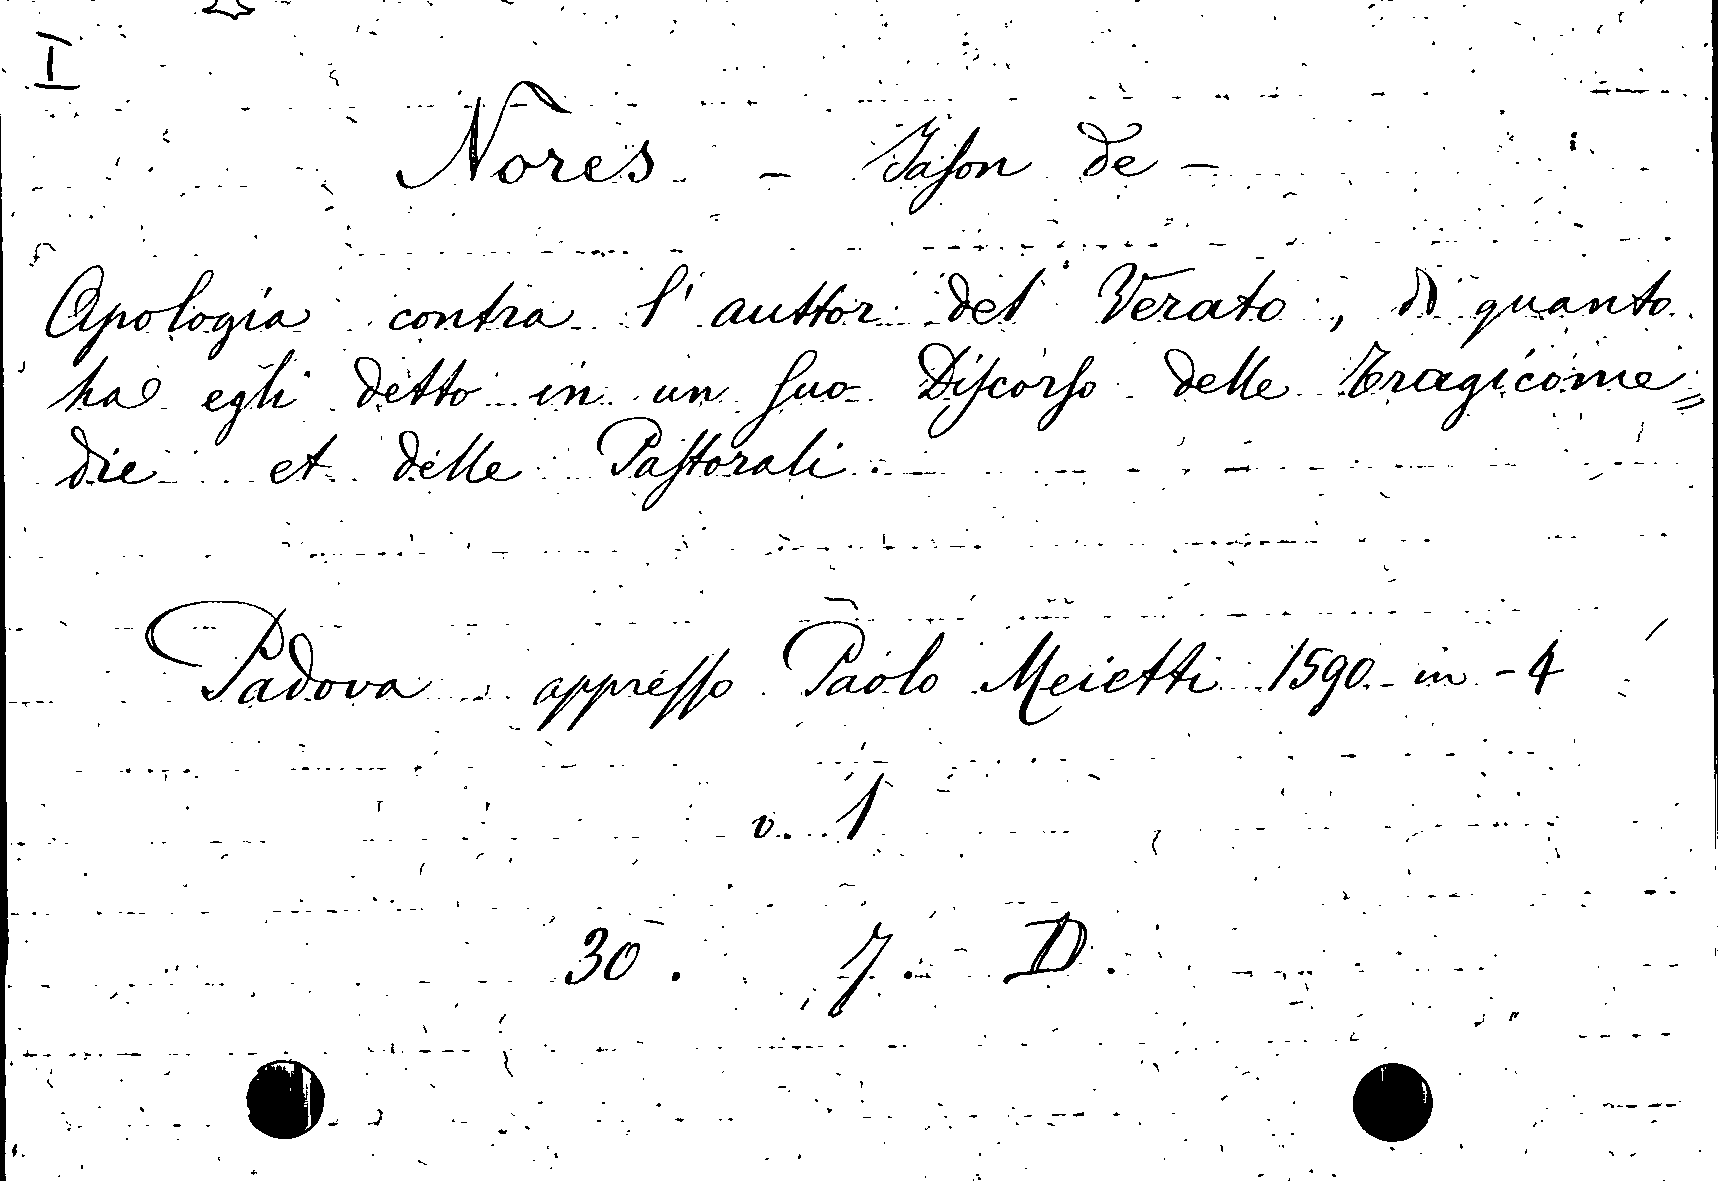 I
Nores - Jason de -
Apologia contra l' auttor del Verato, di quanto
ha egli detto in un suo Discorso delle Tragicome=
die et delle Pastorali.
Padova appresso Paolo Meietti 1590 in - 4
v. 1
30. 7. D.